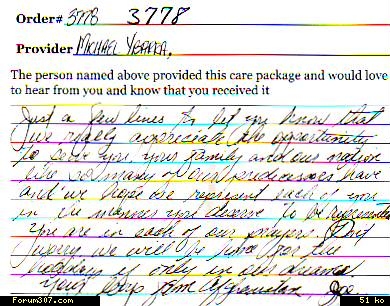 Order# 3778 3778
Provider MICHAEL YBARRA.
The person named above provided this care package and would love
to hear from you and know that you received it
Just a few lines to let you know that
we really appreciate the opportunity
to serve you, your family and our nation
like so many of our predecessors have
and we hope we represent each of you
in the manner you deserve to be represented
You are in each of our prayers. Don't
worry we will be home for the
holidays if only in our dreams.
Your boys from Afghanistan
Forum307.com 51 ko